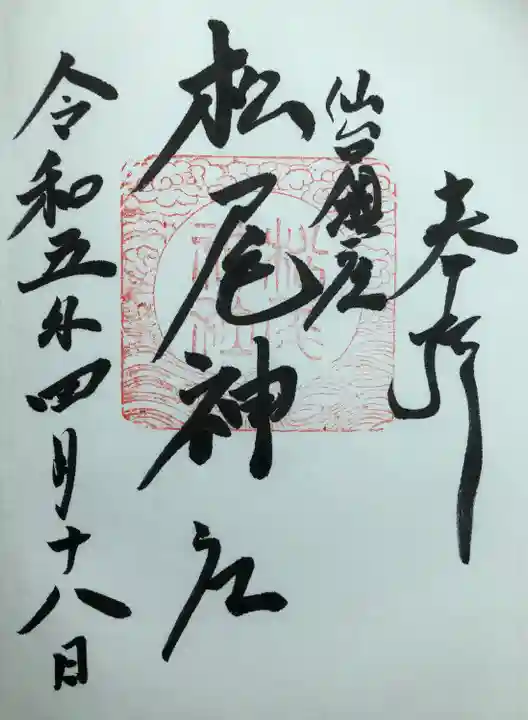 奉拝
仙台鎮座
松尾神社
令和五年四月十八日
松尾神社